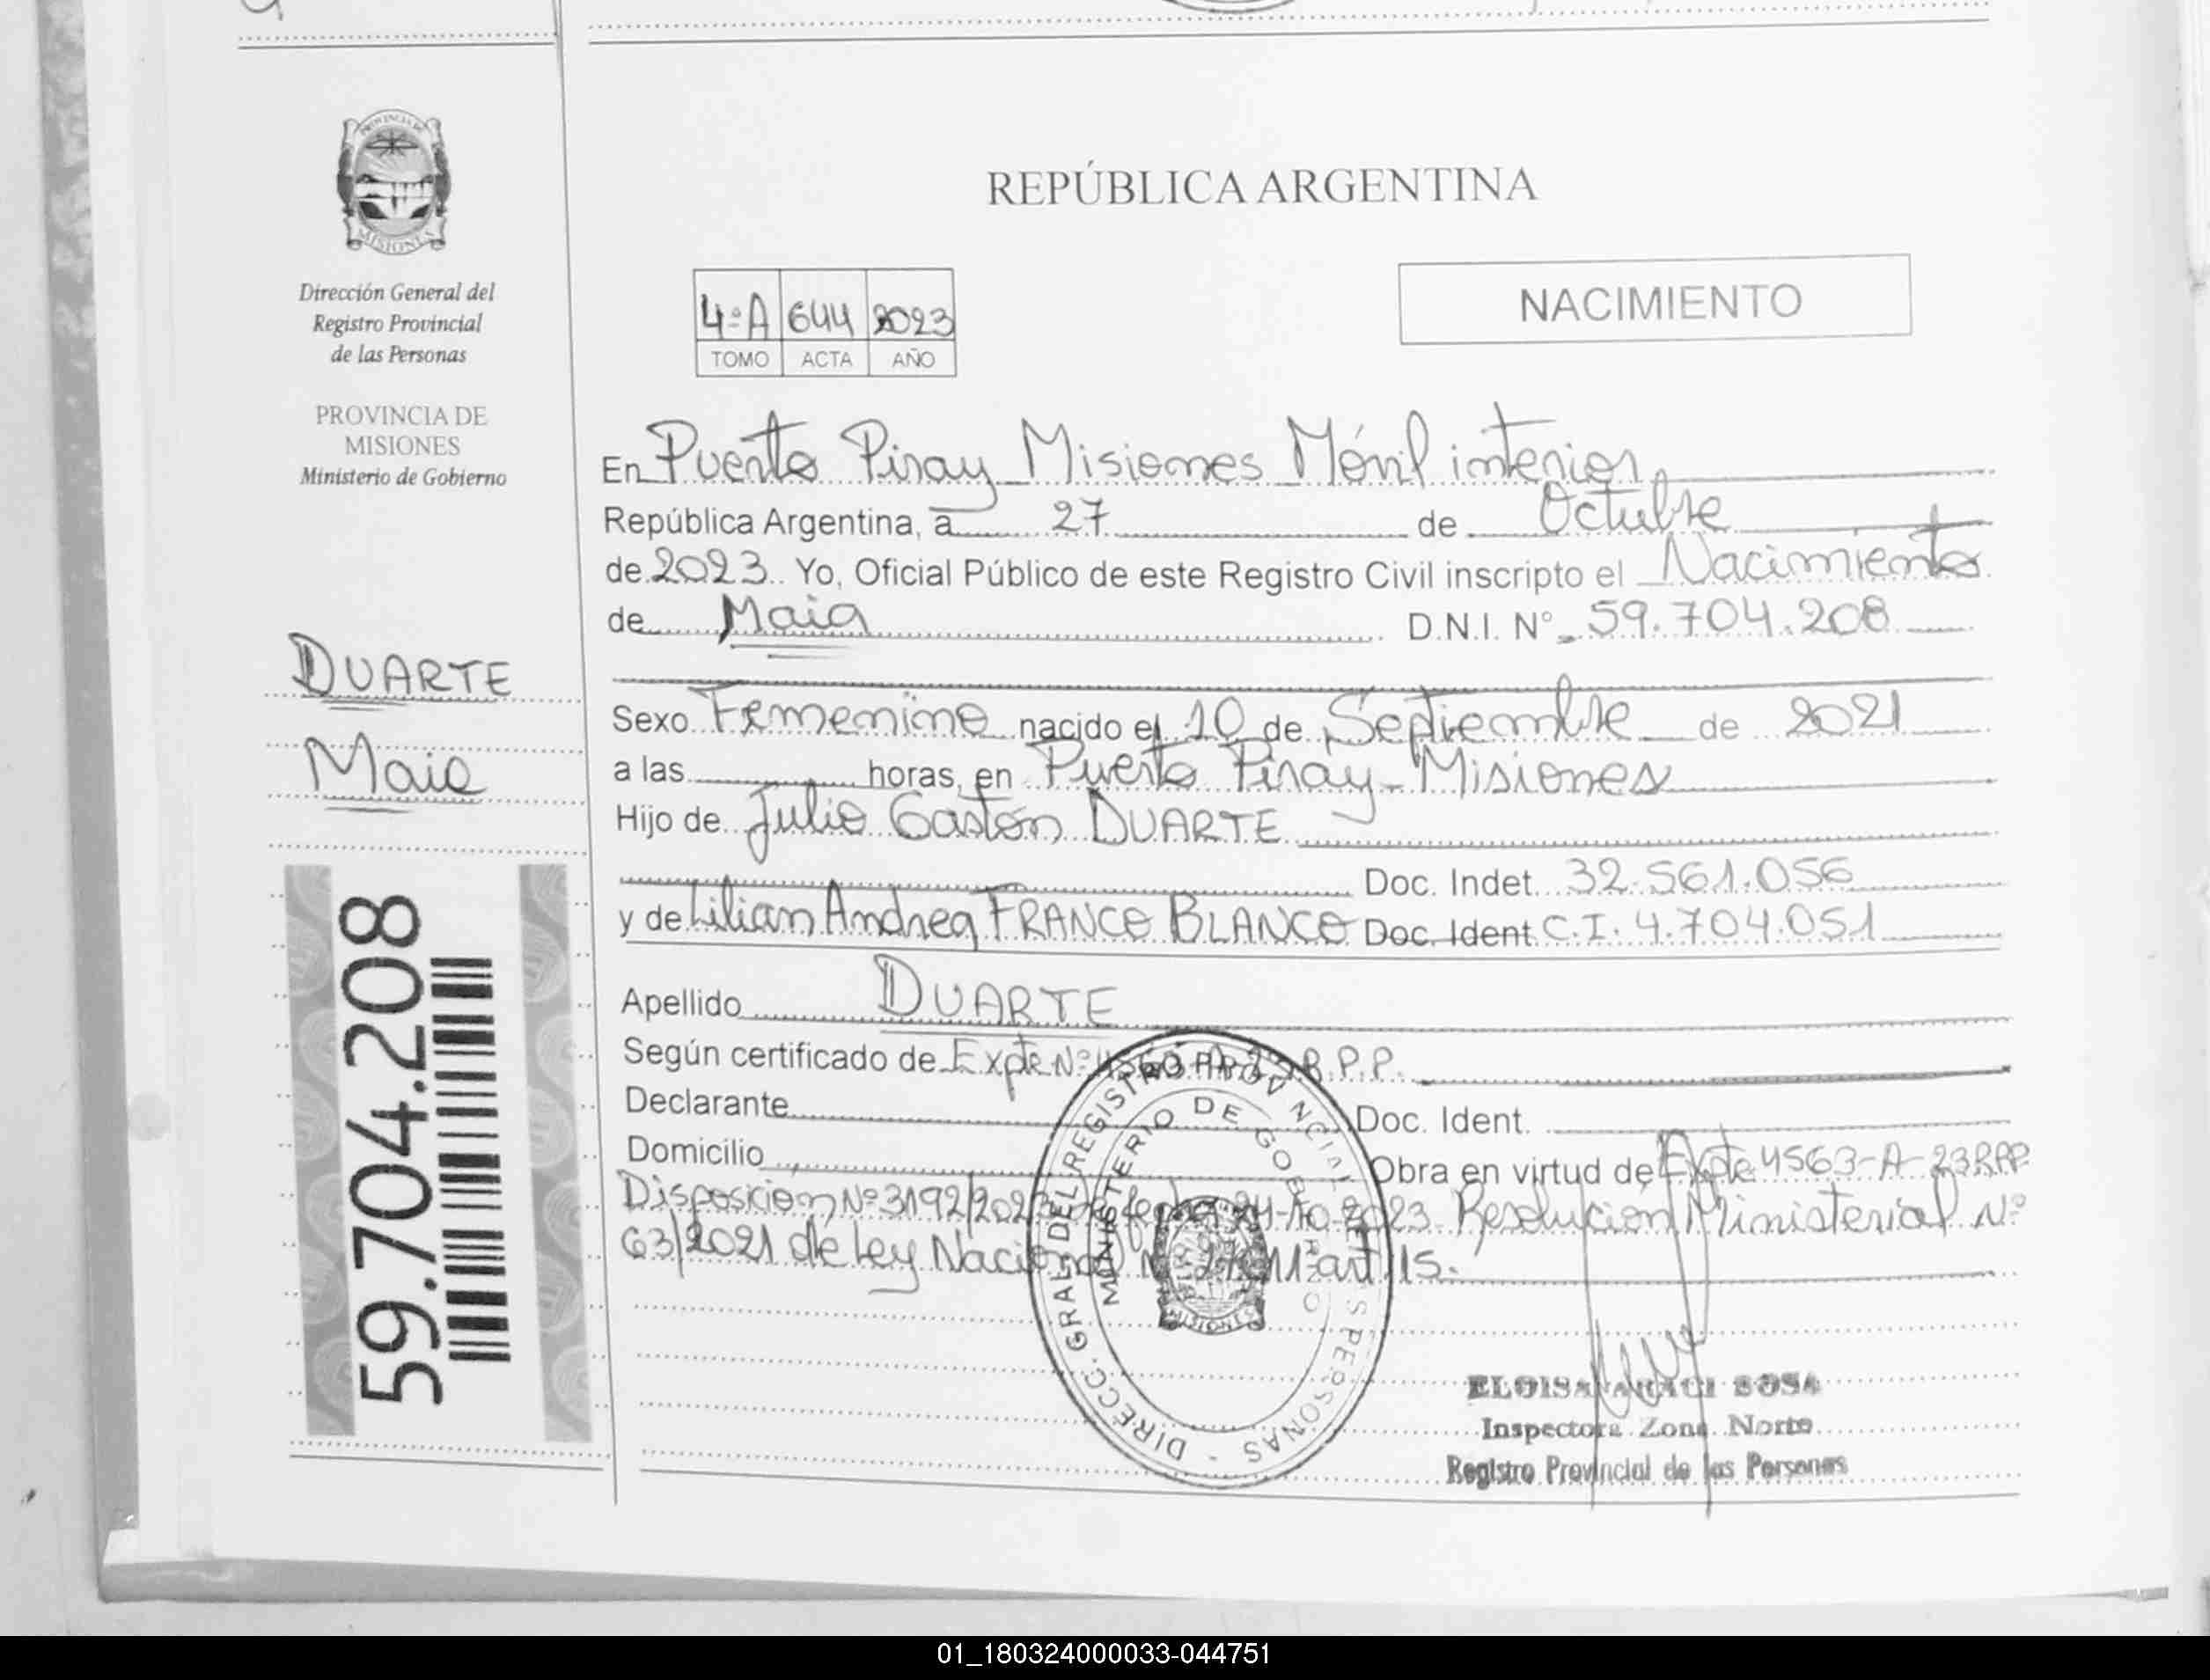 PROVINCIA DE
MISIONES
Dirección General del
Registro Provincial
de las Personas
PROVINCIA DE
MISIONES
Ministerio de Gobierno
DUARTE
Maia
59.704.208
REPÚBLICA ARGENTINA
4ºA 644 2023
TOMO ACTA AÑO
NACIMIENTO
En Puerto Piray Misiones Móvil interior
República Argentina, a 27 de Octubre
de 2023. Yo, Oficial Público de este Registro Civil inscripto el Nacimiento
de Maia D.N.I. N° 59.704.208
Sexo Femenino nacido el 10 de Septiembre de 2021
a las horas, en Puerto Piray - Misiones
Hijo de Julio Gastón DUARTE
Doc. Indet. 32.561.056
y de Lilian Andrea FRANCO BLANCO Doc. Ident. C.I. 4.704.051
Apellido DUARTE
Según certificado de Expte Nº 4563-A-23 R.P.P.
Declarante Doc. Ident.
Domicilio Obra en virtud de Expte 4563-A-23 R.P.P
Disposición Nº 3192/2023 de fecha 24-10-2023. Resolución Ministerial Nº
63/2021 de Ley Nacional art 15.
DIRECC. GRAL. DEL REGISTRO PROVINCIAL DE LAS PERSONAS -
MINISTERIO DE GOBIERNO
MISIONES
ELOISA ARACI SOSA
Inspectora Zona Norte
Registro Provincial de las Personas
01_180324000033-044751